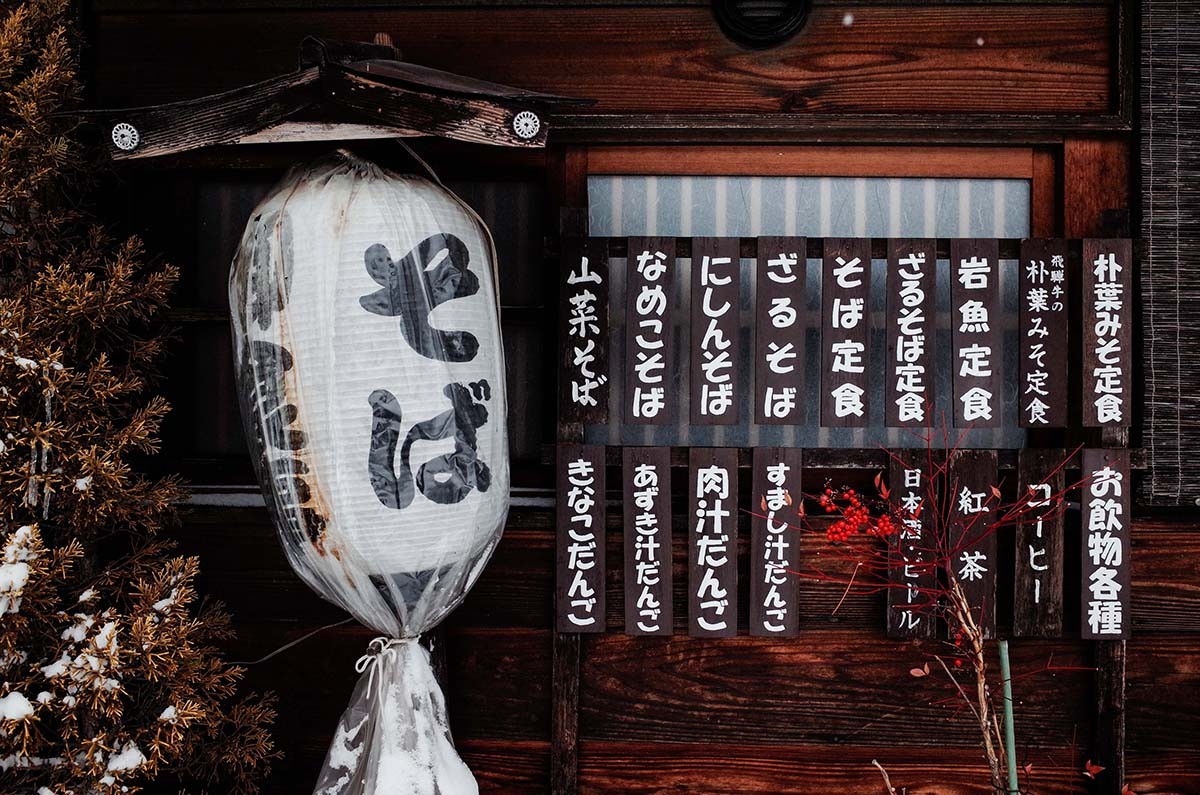 そば
朴葉みそ定食
飛騨牛の
朴葉みそ定食
岩魚定食
ざるそば定食
そば定食
ざるそば
にしんそば
なめこそば
山菜そば
お飲物各種
コーヒー
紅茶
日本酒・ビール
すまし汁だんご
肉汁だんご
あずき汁だんご
きなこだんご